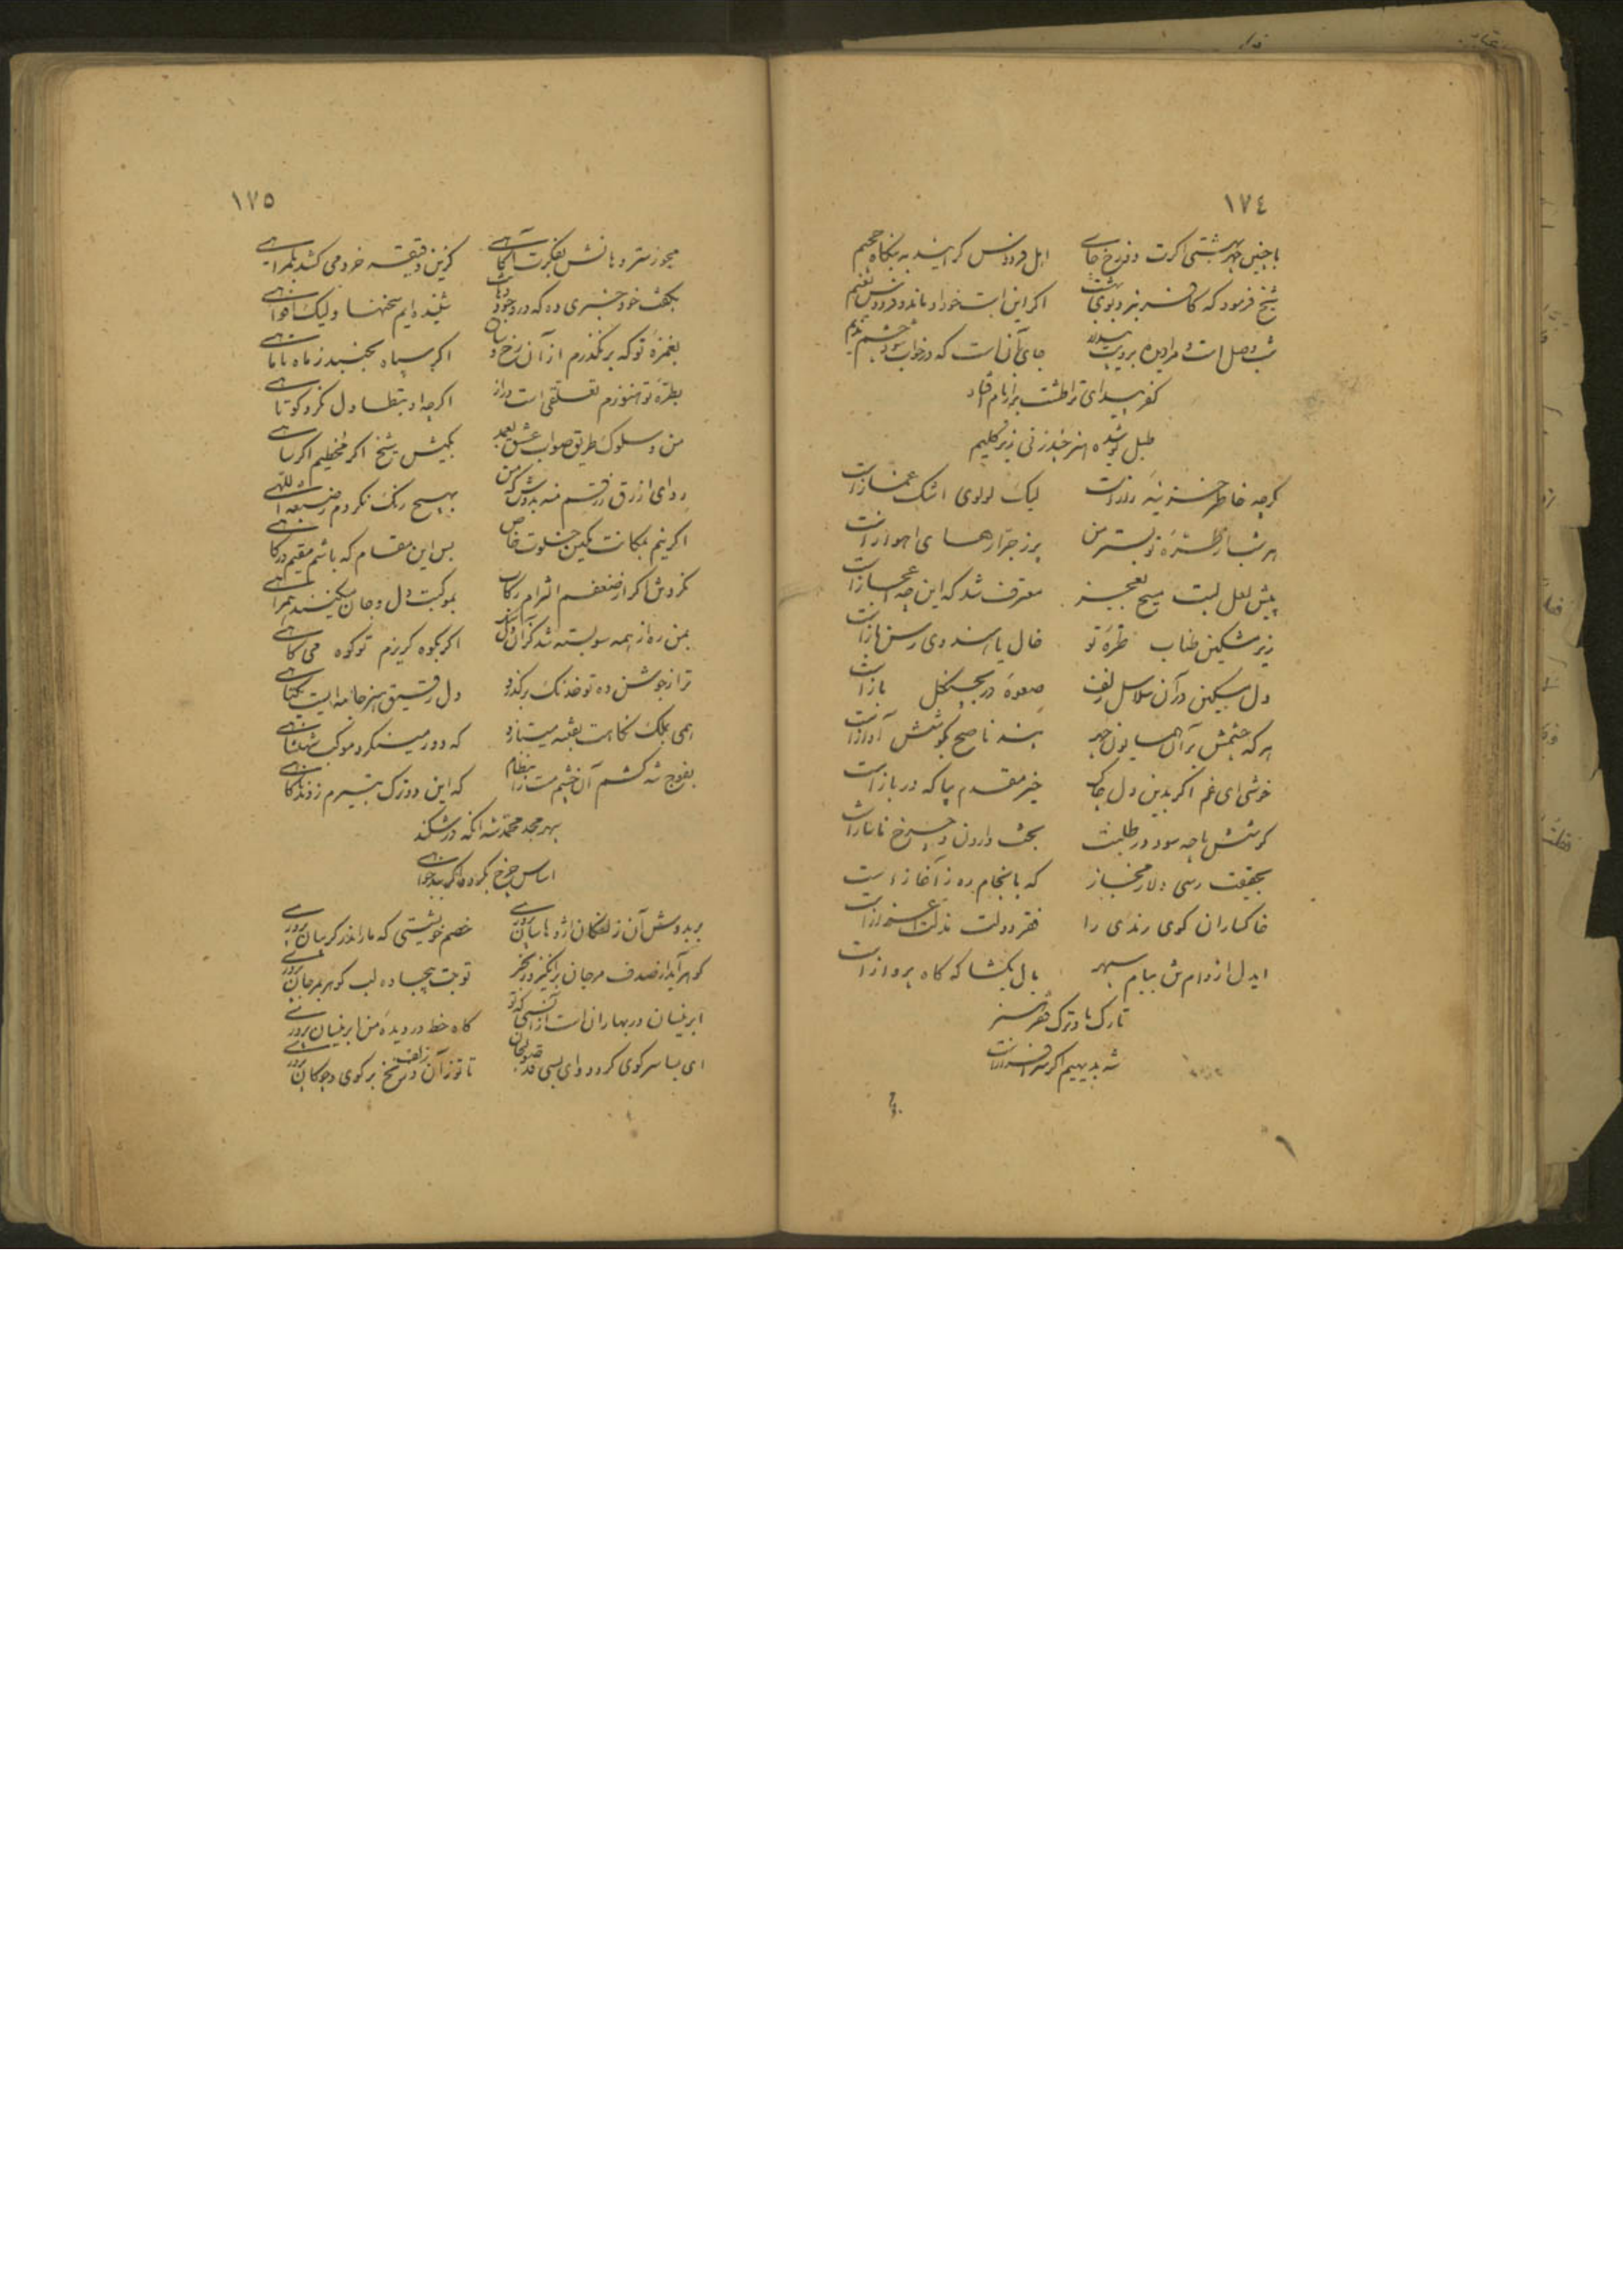 ١٧٤
با چنین چهر بهشتی اگرت دوزخ جای اهل فردوس گرایند به بنگاه جحیم
شیخ فرمود که کافر نبرد بوی بهشت اگر این است خود او ماند و فردوس نعیم
شب وصل است و مرا دیده برویت جای آن است که در خواب شود چشم ندیم
کفر پیدای ترا طشت برآمد از بام
طبل پوشیده هنر چند زنی زیر گلیم
گرچه خاطر خزینه راز است لیک لولوی اشک غماز است
هر شب از طره تو بستر من پر ز جراره‌های اهواز است
پیش لعل لبت مسیح بعجز معترف شد که این چه اعجاز است
زیر مشکین طناب طره تو خال یا هندوی رسن باز است
دل مسکین در آن سلاسل زلف صعوه در چنگل باز است
هر که چشمش بر آن همایون چهر پند ناصح بگوشش آواز است
خوشی ای غم اگر بدین دل چاک خیر مقدم بیا که در باز است
کوشش ما چه سود در طلبت بخت وارون و چرخ ناساز است
بحقیقت رسی دلا ز مجاز که بانجام ره ز آغاز است
خاکساران کوی رندی را فقر دولت مذلت اعزاز است
ایدل از دام تن ببام سپهر بال بگشا که گاه پرواز است
تارک ما و ترک فقر هنر
شه بدیهیم اگر سرافراز است
١٧٥
مجوز سر دهانش بفکرت آگاهی کزین دقیقه خرد می کشد بگمراهی
بگفت خود خبری ده که در وجود دهانت شنیده‌ایم سخنها ولیک افواهی
بغمزه تو که برنگذرم از آن رخ و زلف اگر سپاه بجنبد ز ماه تا ماهی
بطره تو هنوزم تعلقی است دراز اگرچه او بتطاول نکرد کوتاهی
من و سلوک طریق صواب عشق بعمد بکیش شیخ اگر مخطیم اگر ساهی
ردای ازرق زرقم منه بدوش که من بهیچ رنگ نکردم ز صبغة اللهی
اگر نیم بمکانت مکین خلوت خاص بس این مقام که باشم مقیم درگاهی
نکردش اگر از ضعفم التزام رکاب بموکبت دل و جان میکنند همراهی
بمن ره از همه سو بسته شد گران دل اگر بکوه گریزم تو کوه می کاهی
ترا ز جوشن ده تو خدنگ برگذرد دل رقیق هنر جامه‌ایست یکتاهی
همی بملک نگاهت بفتنه میتازد که دور می‌نگرد موکب شهنشاهی
بفوج شه کشم آن چشم مست را بنظام که این دو ترک بتیرم زدند ناگاهی
سپهر مجد محمد شه آنکه درشکند
اساس چرخ بگرداگر بدخواهی
بر بدوش آن زلفکان اژدها سان پروری خصم خویشتی که مار اندر گریبان پروری
گوهر آید از صدف مرجان برانگیزد ز بحر تو بت بیجاده لب گوهر بمرجان پروری
ابر نیسان در بهاران است از آنسی که تو گاه خط در دیده من ابر نیسان پروری
ای بسا سر گوی گردد وای بسی قد صولجان تا تو ز آن زلف و زنخ بر گوی و چوگان پروری